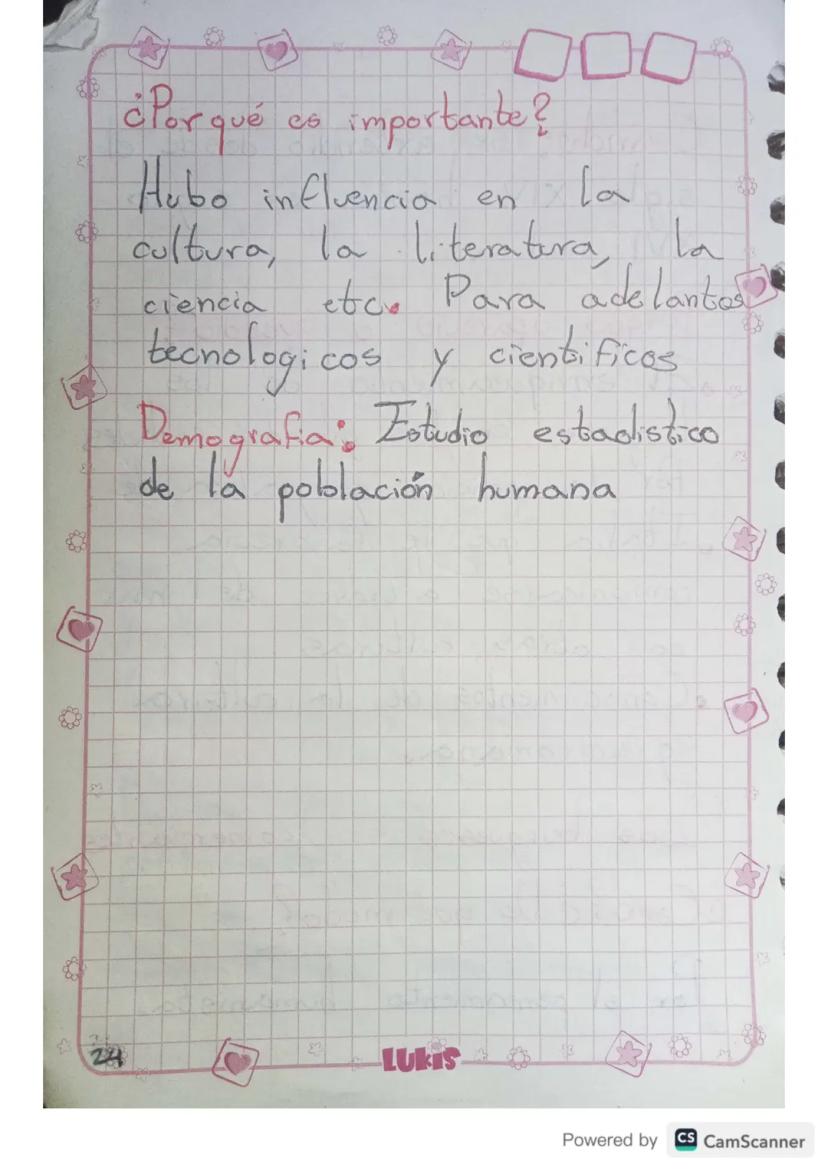 ¿Por qué es importante?
Hubo influencia en la
cultura, la literatura, la
ciencia etc. Para adelantos
tecnologicos y cientificos
Demografia: Estudio estadistico
de la población humana
24
LUKIS
Powered by CS CamScanner